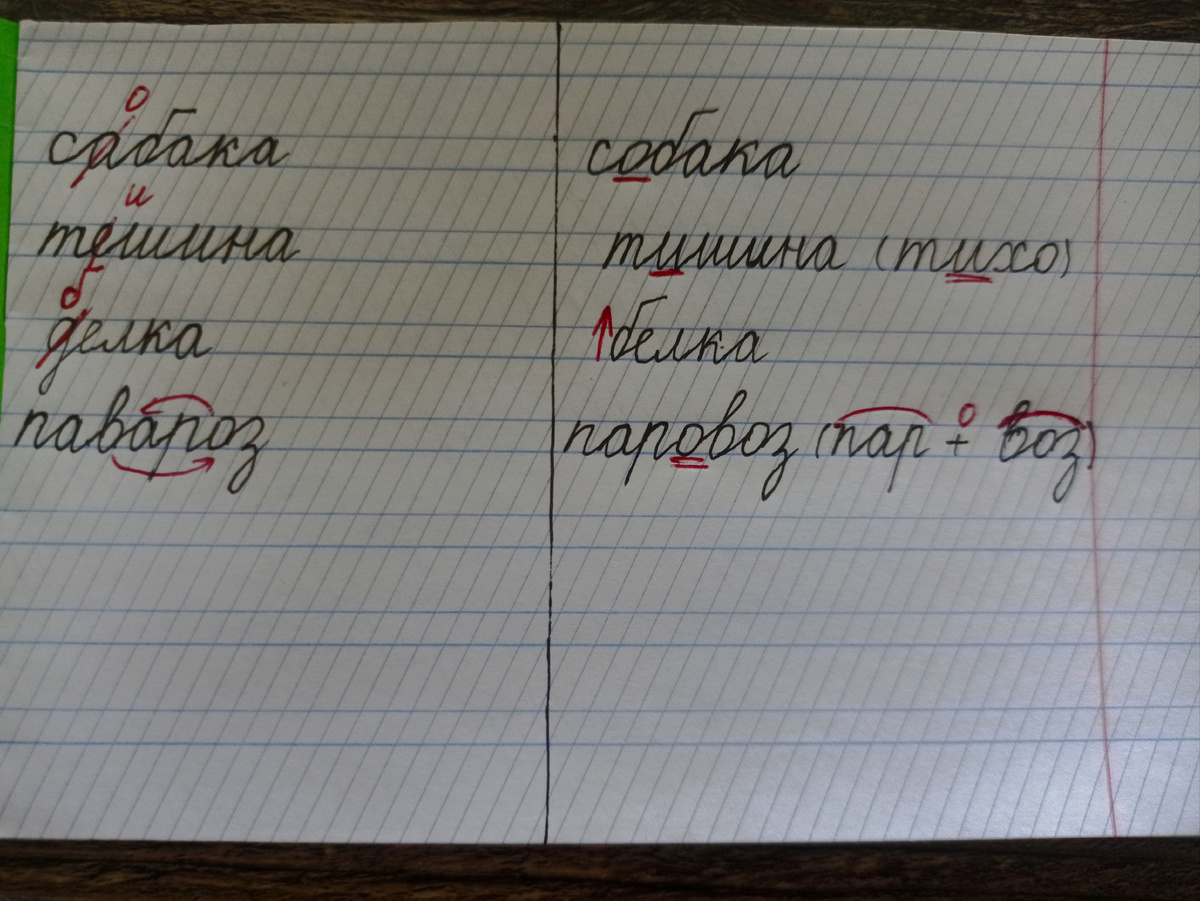 о
сабака собака
и
тешина тишина (тихо)
б
делка белка
павароз паровоз (пар + о воз)